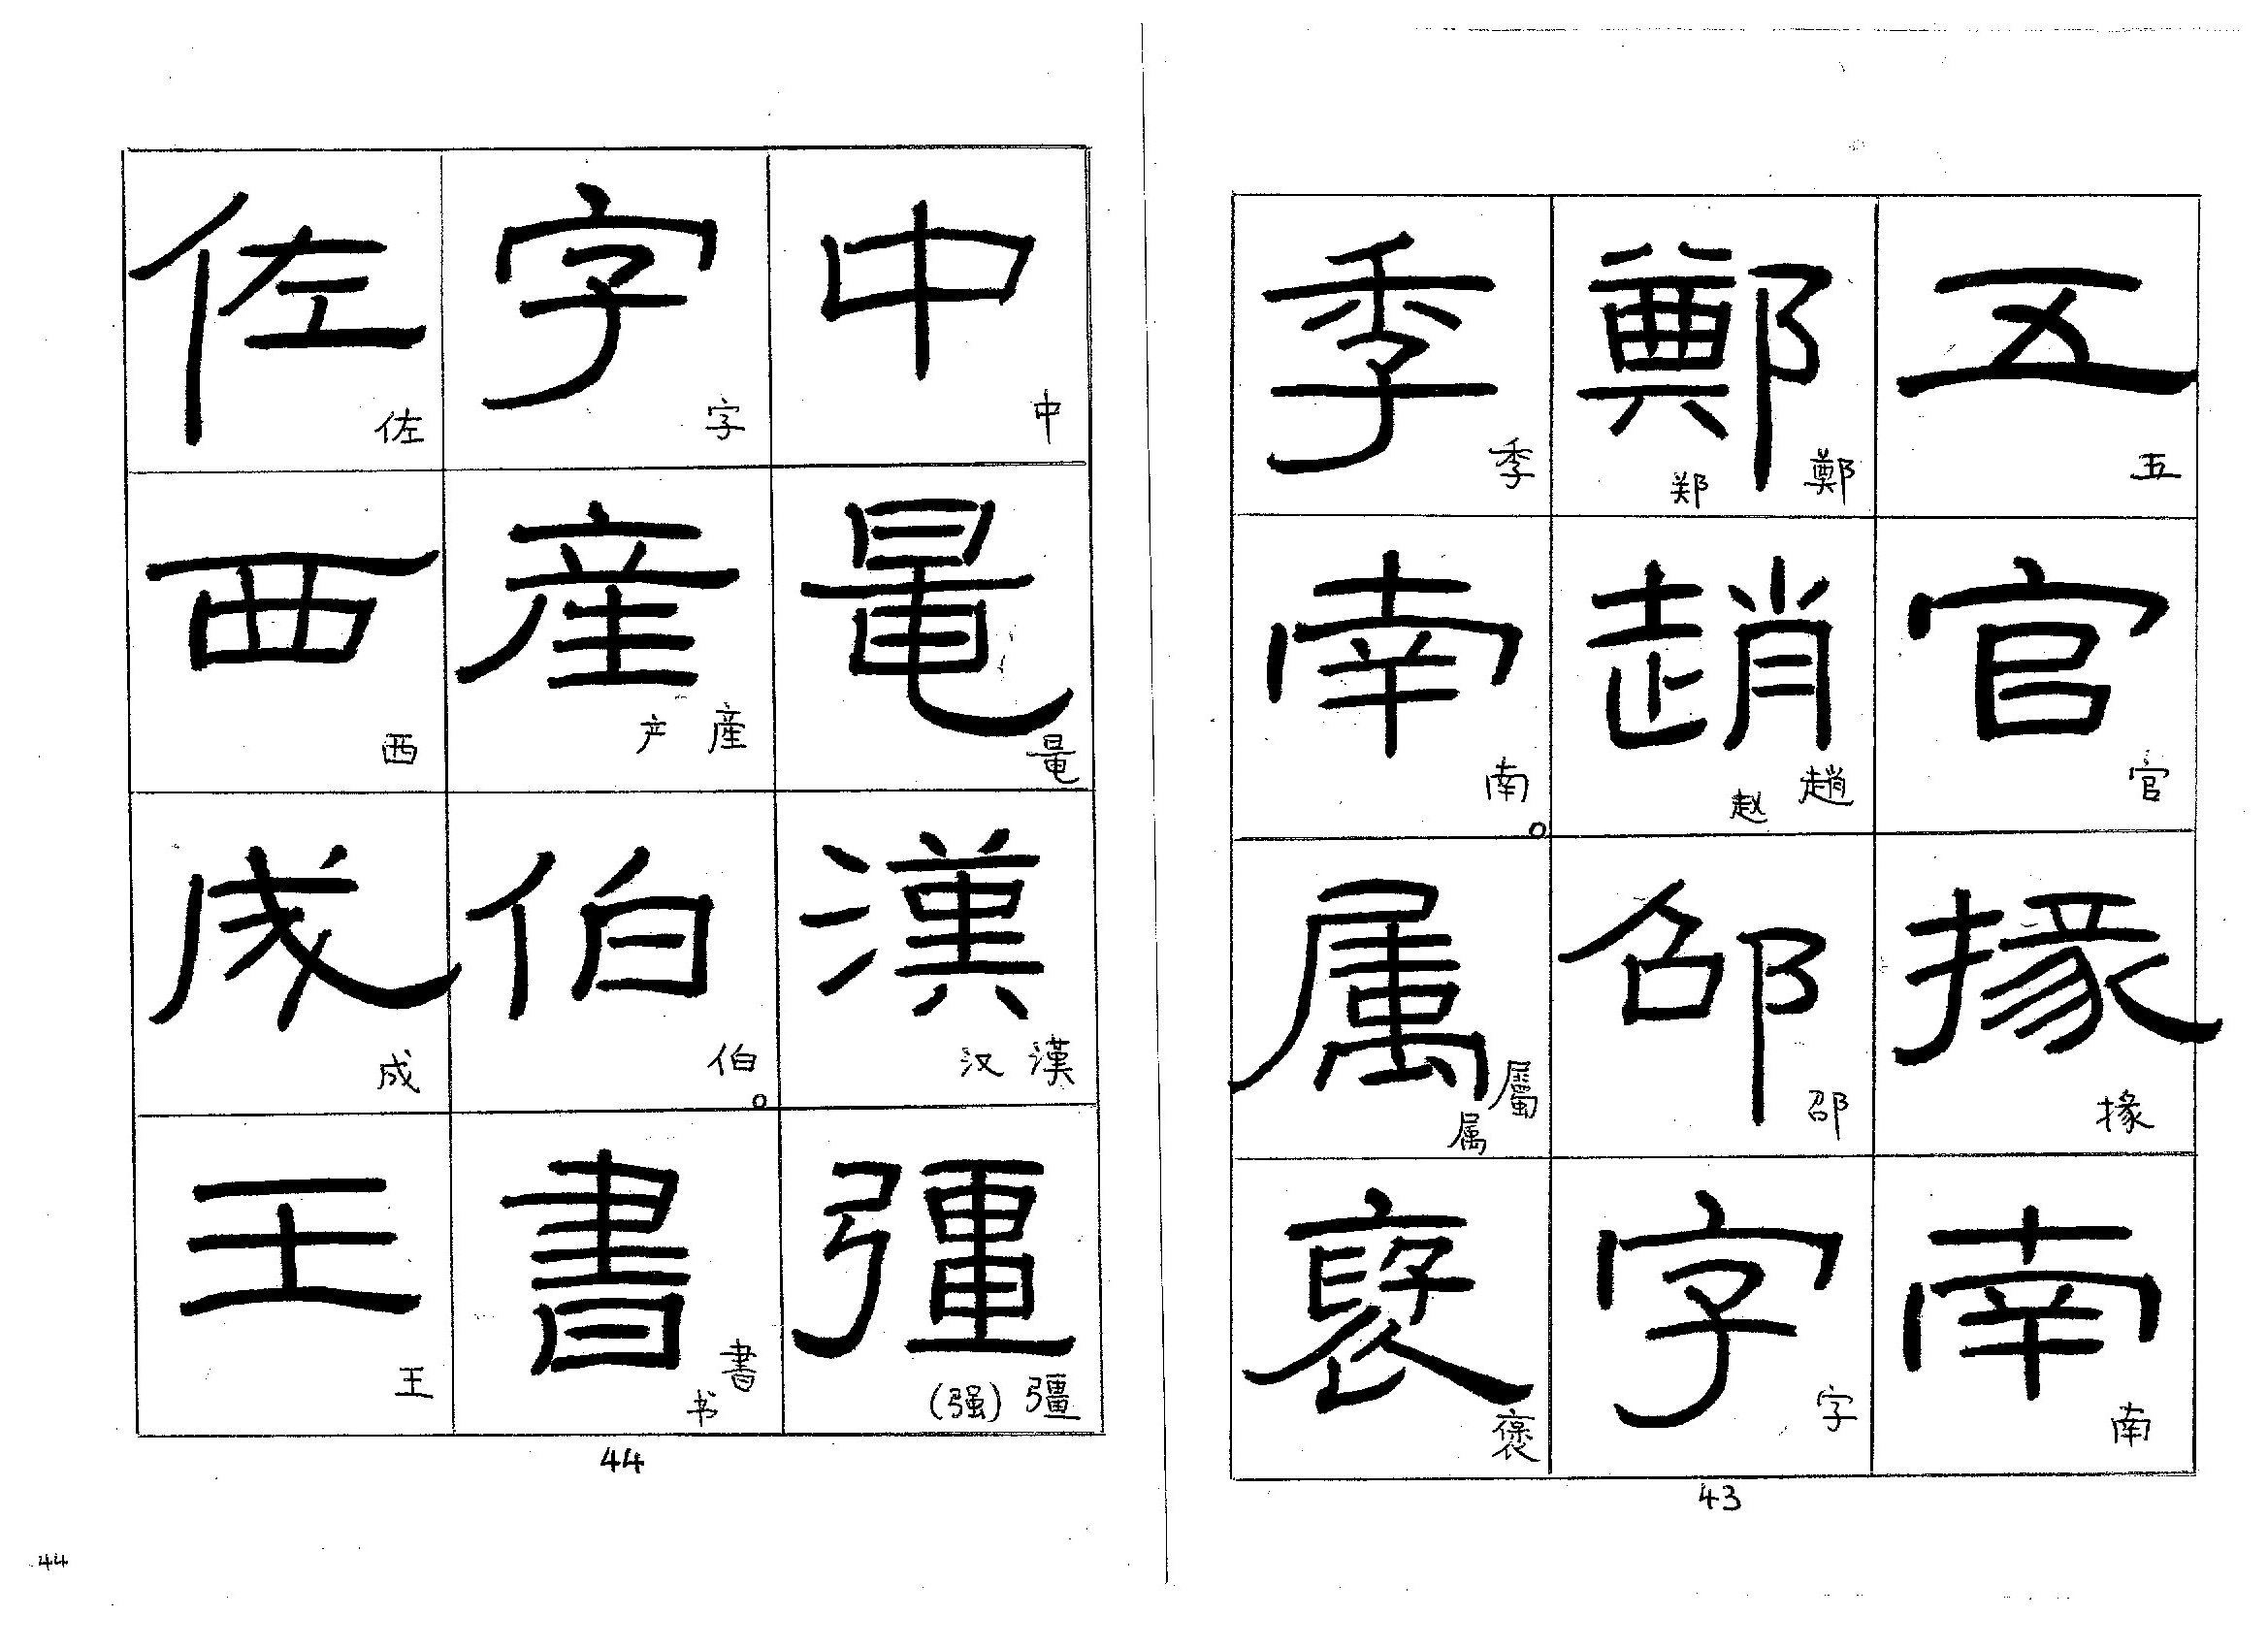 五官掾南
五 官 掾 南
鄭趙邵字
鄭 郑 趙 赵 邵 字
季南屬褒
季 南。 屬 属 褒
43
中鼂漢彊
中 鼂 漢 汉 彊 (强)
字産伯書
字 産 产 伯。 書 书
佐西成王
佐 西 成 王
44
44